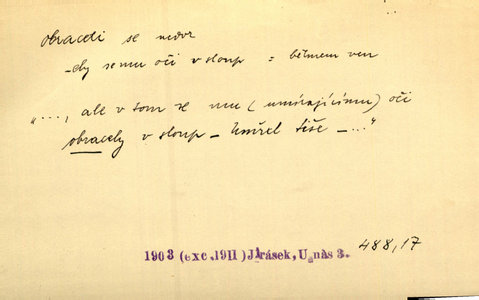 obraceti se nedok
-ely se mu oči v sloup = bělmem ven
"..., ale v tom se mu (umírajícímu) oči
obracely v sloup – Umřel tiše – ..."
1903 (exc. 1911) Jirásek, U nás 3. 488,17